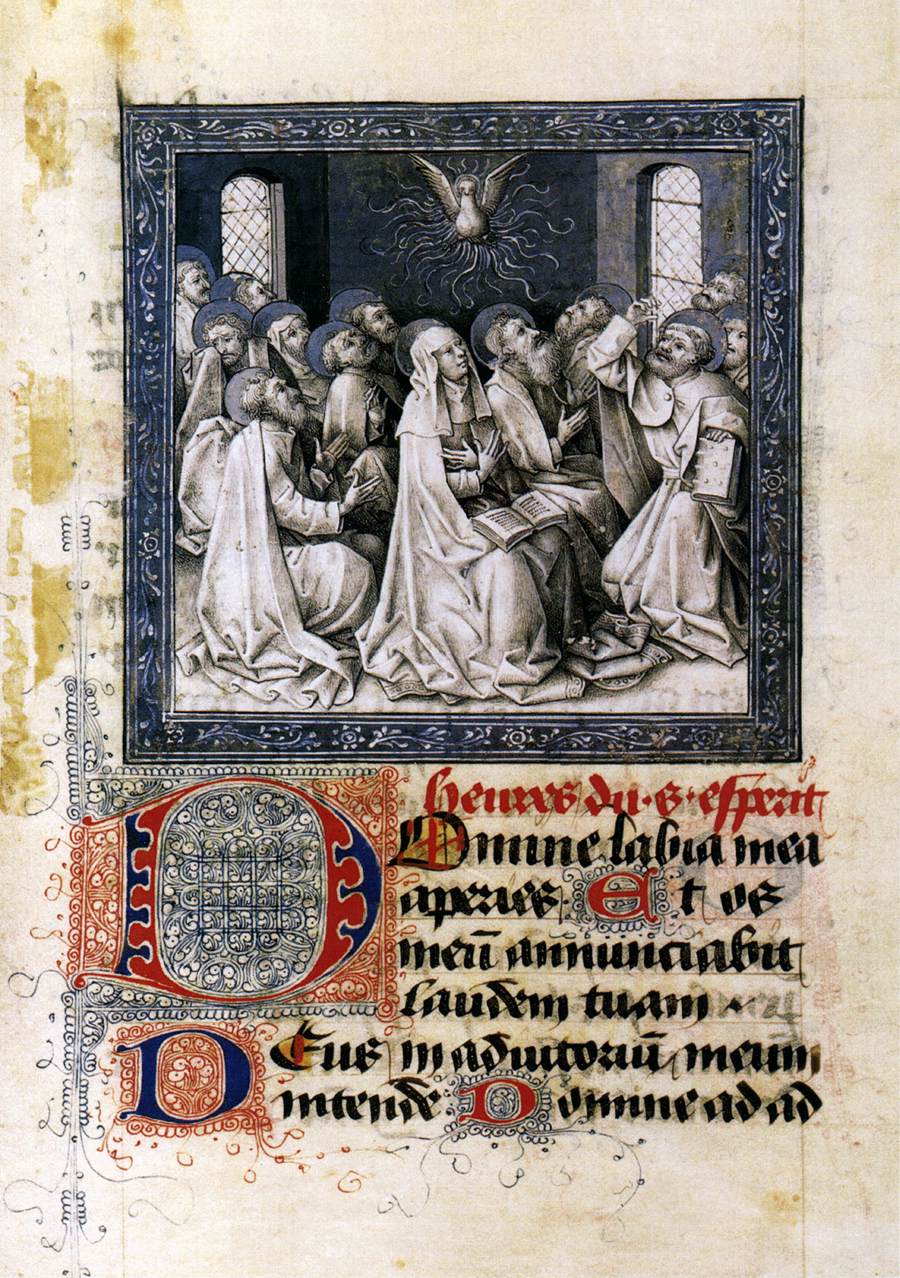 heures du·s·esperit
Domine labia mea
aperies· Et os
meū annunciabit
laudem tuam
Deus in adiutoriū meum
intende Domine ad ad